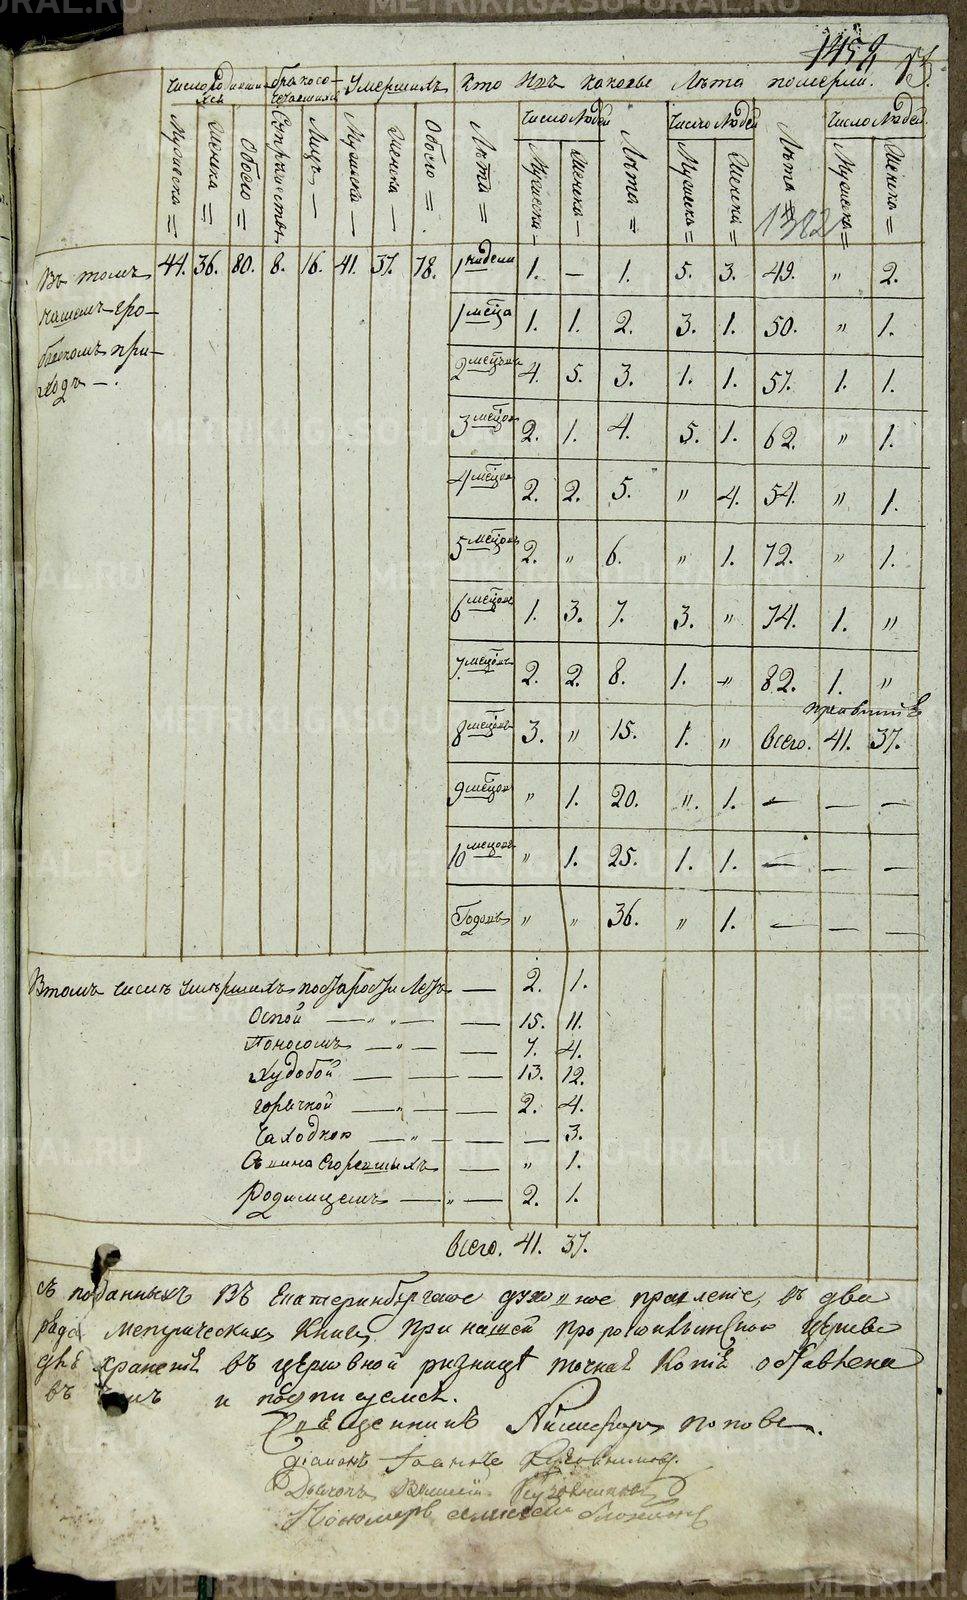 1452
Число родивши | бракосо- | Умершихъ | Кто Изъ каковые Лѣта померли.
хся | четавшихся | Число Людей | Число Людей | Число Людей
Мужеска = | Женска = | Обоего = | Супружествъ | Лицъ — | Мужеска — | Женска — | Обоего = | Лѣта = | Мужеска — | Женска — | Лѣта = | Мужеска = | Женска = | Лѣта = | Мужеска = | Женска =
1382
Въ томъ | 44. | 36. | 80. | 8. | 16. | 41. | 37. | 78. | 1 недели | 1. | — | 1. | 5. | 3. | 49. | „ | 2.
нашемъ гро-
бовскомъ при-
ходѣ —.
1 мсца | 1. | 1. | 2. | 3. | 1. | 50. | „ | 1.
2 мсцовъ | 4. | 5. | 3. | 1. | 1. | 57. | 1. | 1.
3 мсцов | 2. | 1. | 4. | 5. | 1. | 62. | „ | 1.
4 мсцов | 2. | 2. | 5. | „ | 4. | 54. | „ | 1.
5 мсцовъ | 2. | „ | 6. | „ | 1. | 72. | „ | 1.
6 мсцовъ | 1. | 3. | 7. | 3. | „ | 74. | 1. | „
7 мсцовъ | 2. | 2. | 8. | 1. | „ | 82. | 1. | „
8 мсцовъ | 3. | „ | 15. | 1. | „ | всего. | 41. | 37.
9 мсцов | „ | 1. | 20. | „ | 1. | — | — | —
10 мсцовъ | „ | 1. | 25. | 1. | 1. | — | — | —
Годовъ | „ | „ | 36. | „ | 1. | — | — | —
В томъ числѣ умершихъ по старости Летъ — 2. 1.
Оспой — „ — 15. 11.
Поносомъ — „ — 7. 4.
Худобой — — — 13. 12.
горячкой — „ — 2. 4.
Чахоткою — „ — — 3.
Съ вина сгоревшихъ — „ 1.
Родимцемъ — „ — 2. 1.
всего. 41. 37.
съ поданныхъ Въ Екатеринбургское духовное правленіе, въ два
ряда Метрическихъ Книгъ, при нашей церкве
гдѣ храненіе въ церковной ризницѣ точная Копія оставлена
въ чемъ и подписуемся.
Священникъ Никифоръ Поповъ.
діаконъ Іоаннъ
Дьячокъ Василей
Пономарь Алексей
METRIKI.GASO-URAL.RU